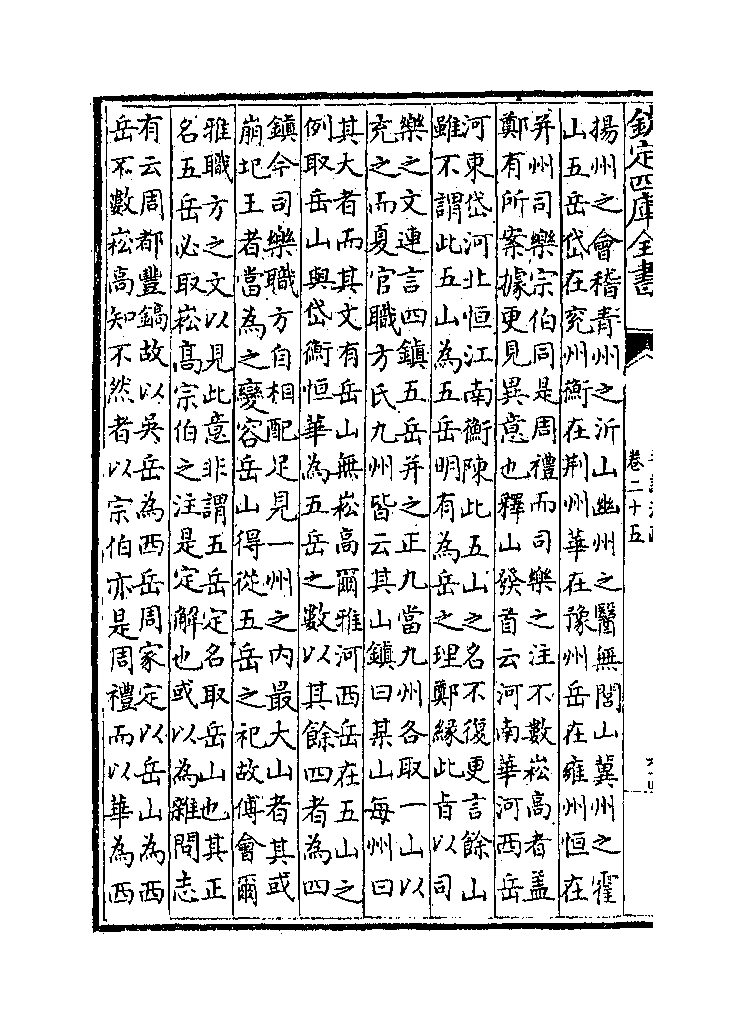 欽定四庫全書
卷二十五
揚州之會稽青州之沂山幽州之醫無閭山冀州之霍
山五岳岱在兖州衡在荆州華在豫州岳在雍州恒在
并州司樂宗伯同是周禮而司樂之注不數崧高者盖
鄭有所案據更見異意也釋山發首云河南華河西岳
河東岱河北恒江南衡陳此五山之名不復更言餘山
雖不謂此五山為五岳明有為岳之理鄭緣此㫖以司
樂之文連言四鎮五岳并之正九當九州各取一山以
充之而夏官職方氏九州皆云其山鎮曰某山每州曰
其大者而其文有岳山無崧高爾雅河西岳在五山之
例取岳山與岱衡恒華為五岳之數以其餘四者為四
鎮今司樂職方自相配足見一州之内最大山者其或
崩圯王者當為之變容岳山得從五岳之祀故傅會爾
雅職方之文以見此意非謂五岳定名取岳山也其正
名五岳必取崧高宗伯之注是定解也或以為雜問志
有云周都豐鎬故以吳岳為西岳周家定以岳山為西
岳不數崧高知不然者以宗伯亦是周禮而以華為西